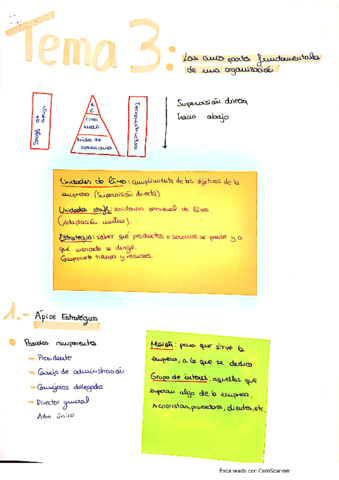 Tema 3:
Las cinco partes fundamentales
de una organización
Staff de
A.E
Línea
Media
Núcleo de
operaciones
Tecnoestructura
Supervisión directa
hacia abajo
Unidades de línea: cumplimiento de los objetivos de la
empresa. (Supervisión directa)
Unidades staff: asistencia personal de línea.
(Adaptación mutua).
Estrategia: saber qué productos o servicios se presta y a
qué mercado se dirige.
Comprometo tiempo y recursos.
1.- Ápice Estratégico
Posibles componentes
- Presidente
- Consejo de administración
- Consejeros delegados
- Director general
Adm único
Misión: para que sirve la
empresa, a lo que se dedica
Grupo de interés: aquellos que
esperan algo de la empresa.
Accionistas, proveedores, clientes, etc.
Escaneado con CamScanner